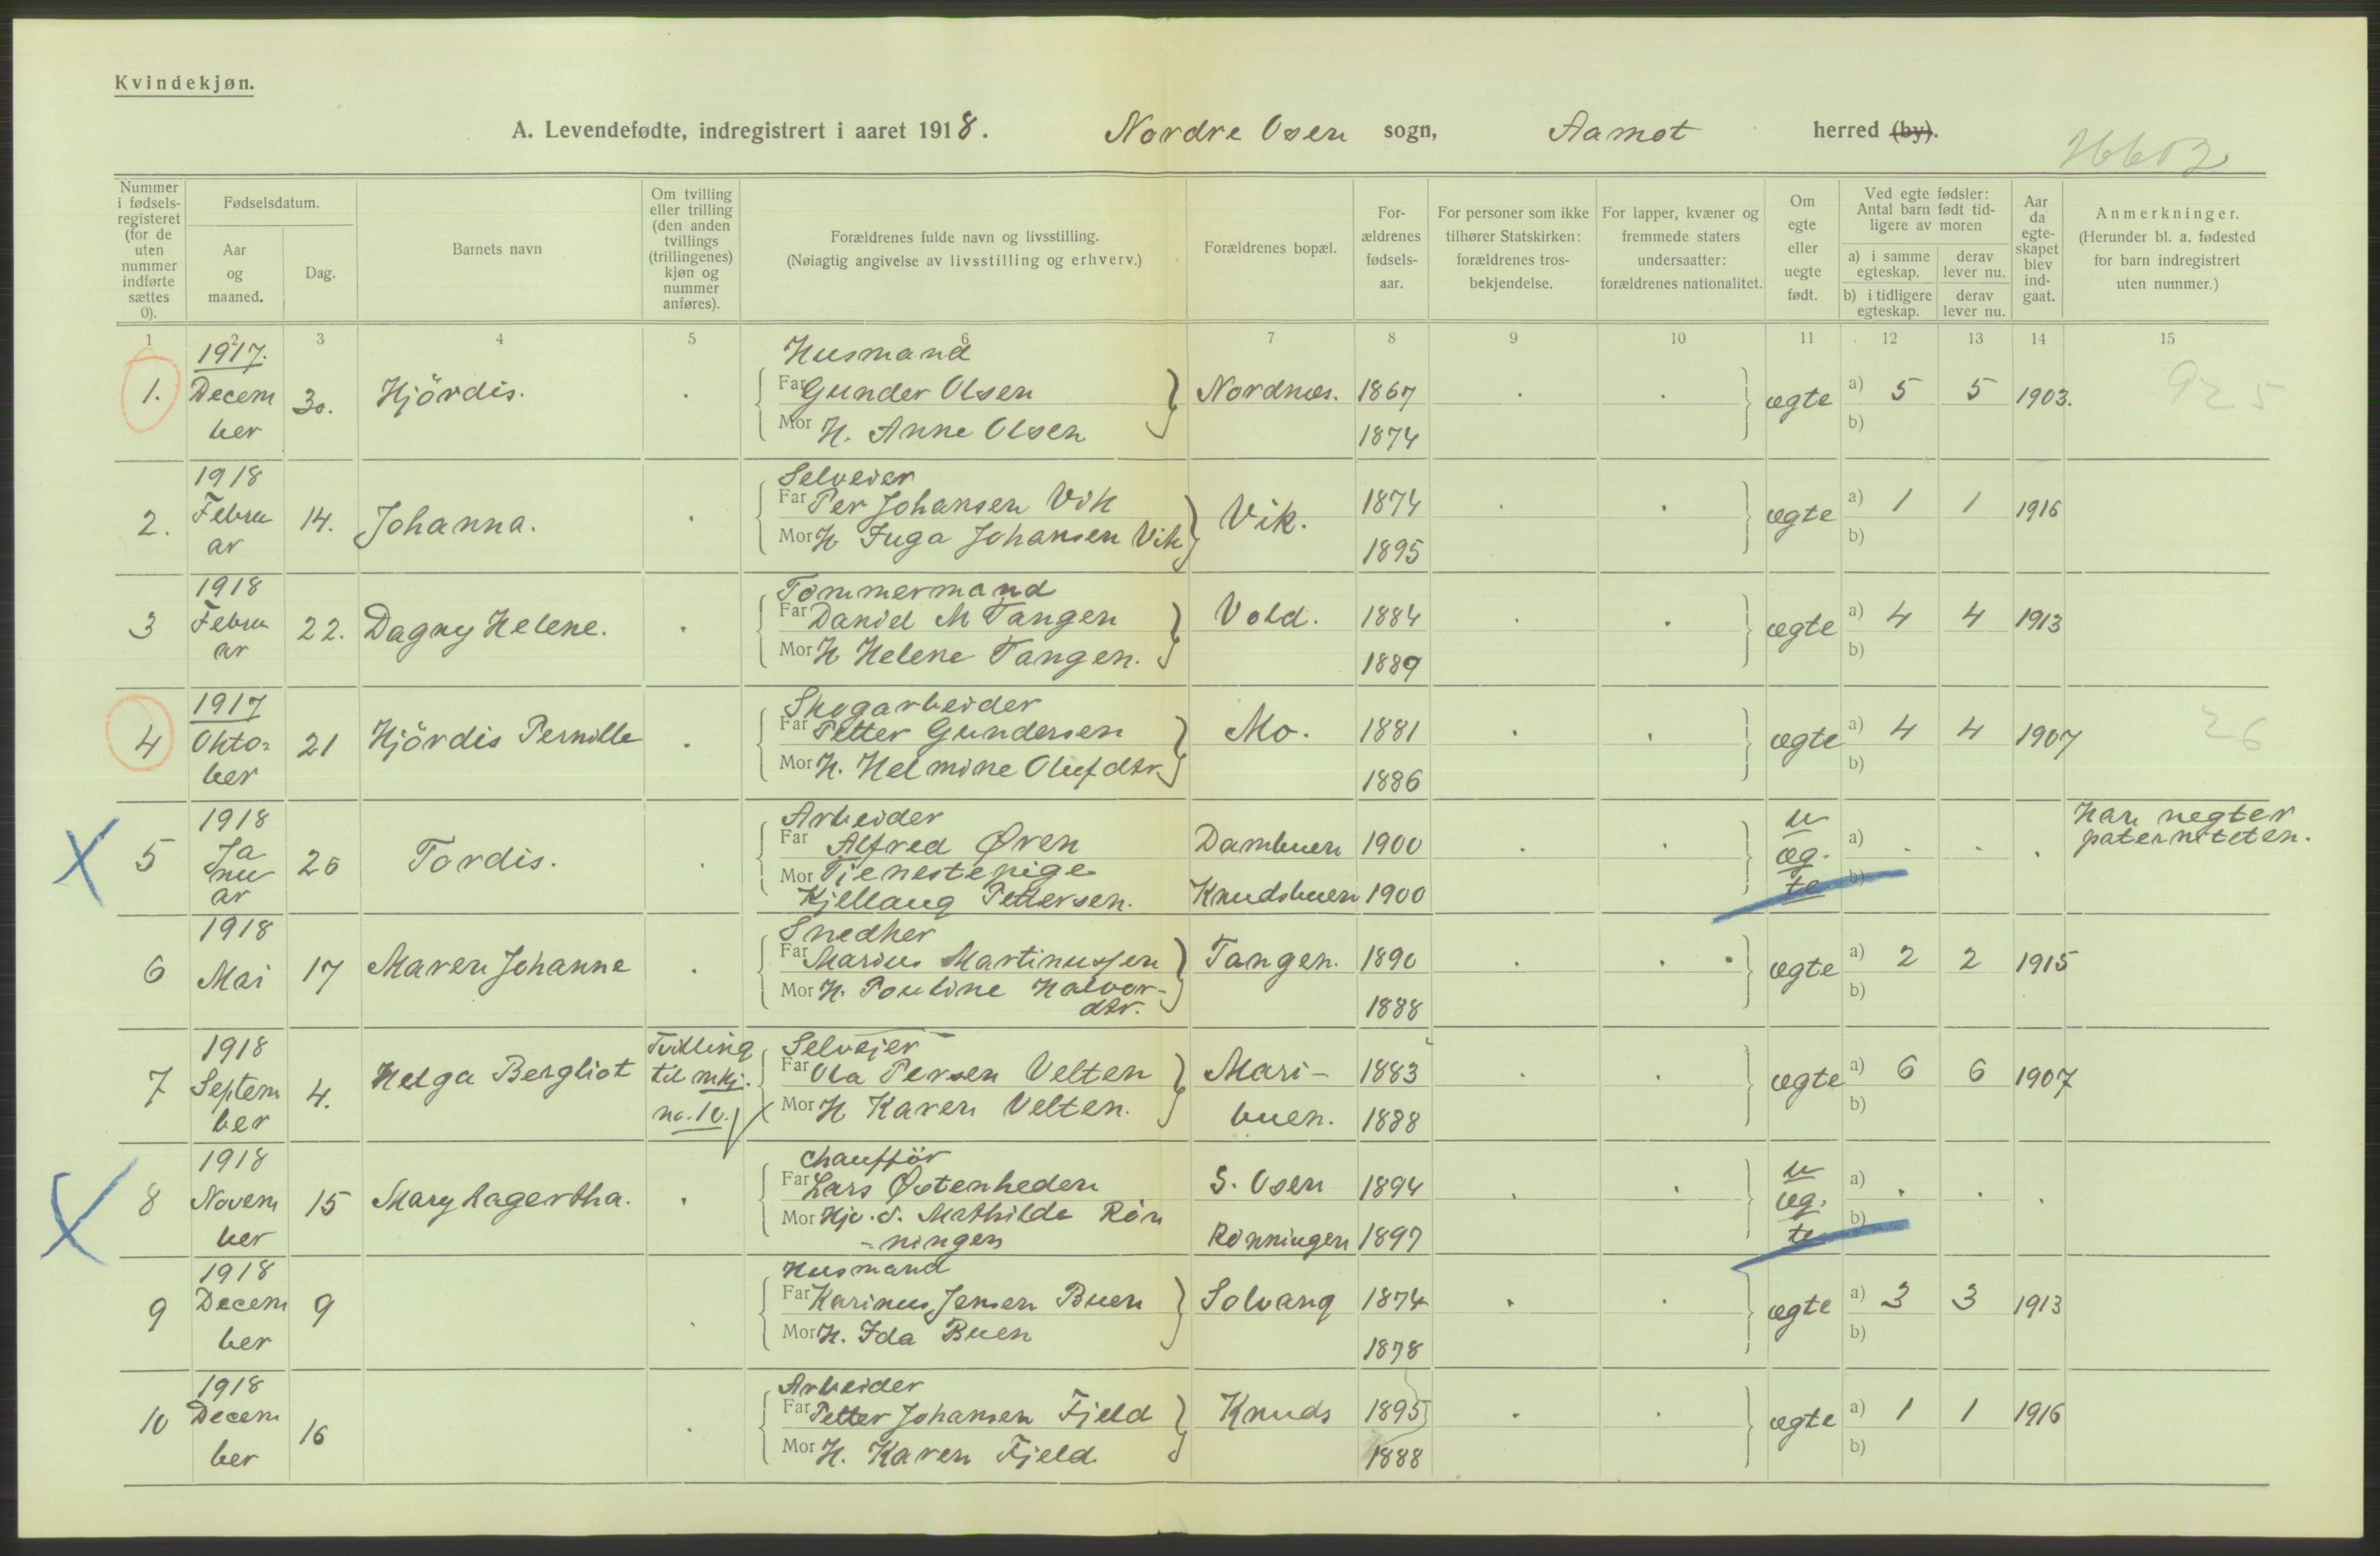 Kvindekjøn.
A. Levendefødte, indregistrert i aaret 1918. Nordre Osen sogn, Aamot herred (by).
26603
Nummer i fødsels-registeret (for de uten nummer indførte sættes 0).
Fødselsdatum.
Aar og maaned.
Dag.
Barnets navn
Om tvilling eller trilling (den anden tvillings (trillingenes) kjøn og nummer anføres).
Forældrenes fulde navn og livsstilling.
(Nøiagtig angivelse av livsstilling og erhverv.)
Forældrenes bopæl.
For-ældrenes fødsels-aar.
For personer som ikke tilhører Statskirken: forældrenes tros-bekjendelse.
For lapper, kvæner og fremmede staters undersaatter: forældrenes nationalitet.
Om egte eller uegte født.
Ved egte fødsler: Antal barn født tid-ligere av moren
a) i samme egteskap. derav lever nu.
b) i tidligere egteskap. derav lever nu.
Aar da egte-skapet blev ind-gaat.
Anmerkninger.
(Herunder bl. a. fødested for barn indregistrert uten nummer.)
1 2 3 4 5 6 7 8 9 10 11 12 13 14 15
1917. Husmand
1. Decem 30. Hjördis. . Far Gunder Olsen Nordnæs. 1867 . . ægte a) 5 5 1903. 925
ber Mor H. Anne Olsen 1874 b)
1918 Selveier
2. Febru 14. Johanna. . Far Per Johansen Vik Vik. 1874 . . ægte a) 1 1 1916
ar Mor H Inga Johansen Vik 1895 b)
1918 Tömmermand
3 Febru 22. Dagny Helene. . Far Daniel M Tangen Vold. 1884 . . ægte a) 4 4 1913
ar Mor H Helene Tangen. 1889 b)
1917 Skogarbeider
4 Okto= 21 Hjördis Pernille . Far Petter Gundersen Mo. 1881 . . ægte a) 4 4 1907 26
ber Mor H. Helmine Olufdtr. 1886 b)
1918 Arbeider u Han negter
5 Ja 26 Tordis. . Far Alfred Øren Dambuen 1900 . . æg- a) . . . paterniteten.
nu Mor Tjenestepige te b)
ar Kjellaug Pettersen. Knudsbuen 1900
1918 Snedker
6 Mai 17 Maren Johanne . Far Marius Martinussen Tangen. 1890 . . ægte a) 2 2 1915
Mor H. Pouline Halvor- 1888 b)
dtr.
1918 Tvilling Selvejer
7 Septem 4. Helga Bergliot til mkj. Far Ola Persen Velten Mari- 1883 . . ægte a) 6 6 1907
ber no. 10. Mor H Karen Velten. buen. 1888 b)
1918 Chaufför u
8 Novem 15 Mary Lagertha. . Far Lars Østenheden S. Osen 1894 . . æg- a) . . .
ber Mor Hjv. d. Mathilde Rön te b)
-ningen Rönningen 1897
1918 Husmand
9 Decem 9 . Far Karinus Jensen Buen Solvang 1874 . . ægte a) 3 3 1913
ber Mor H. Ida Buen 1878 b)
1918 Arbeider
10 Decem 16 . Far Petter Johansen Fjeld Knuds 1895 . . ægte a) 1 1 1916
ber Mor H. Karen Fjeld 1888 b)